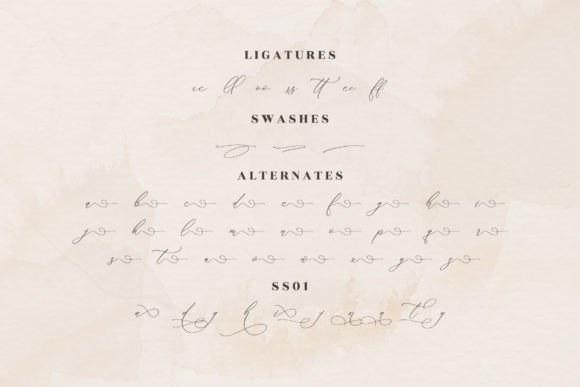 LIGATURES
ll oo ss tt ff
SWASHES
ALTERNATES
a b c d e f g h i
j k l m n o p q r
s t u v w x y z
SS01